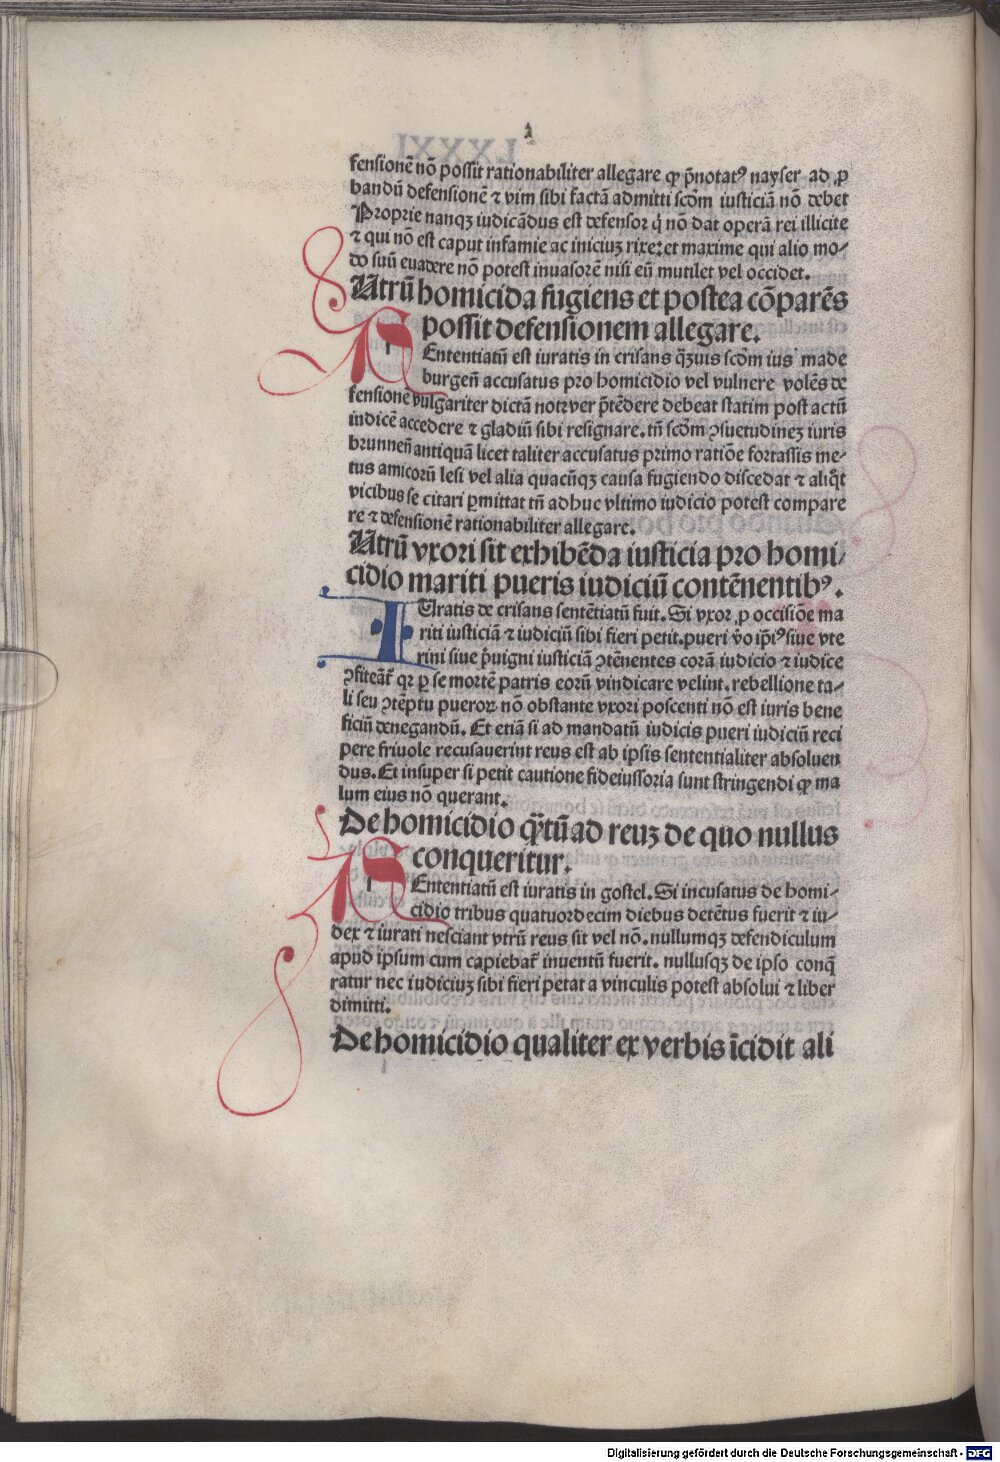 i
fensionē nō possit rationabiliter allegare ꝙ p̄notatꝰ nayser ad ꝓ
bandū defensionē ⁊ vim sibi factā admitti scōm iusticiā nō debet
Proprie nanqꝫ iudicādus est defensor q̇ nō dat operā rei illicite
⁊ qui nō est caput infamie ac iniciuꝫ rixe: et maxime qui alio mo-
do suū euadere nō potest inuasorē nisi eū mutilet vel occidet.
Utrū homicida fugiens et postea cōparēs
possit defensionem allegare.
Ententiatū est iuratis in crisans qꝫuis scōm ius made
burgeñ accusatus pro homicidio vel vulnere volēs de
fensionē vulgariter dictā notꝛver p̄tēdere debeat statim post actū
iudicē accedere ⁊ gladiū sibi resignare. tñ scōm ꝯsuetudineꝫ iuris
brunneñ antiquā licet taliter accusatus primo ratiōe fortassis me-
tus amicorū lesi vel alia quacūqꝫ causa fugiendo discedat ⁊ aliq̄t
vicibus se citari ꝑmittat tñ adhuc vltimo iudicio potest compare
re ⁊ defensionē rationabiliter allegare.
Utrū vxori sit exhibēda iusticia pro homi-
cidio mariti pueris iudiciū contēnentibꝰ.
Uratis de crisans sentētiatū fuit. Si vxor ꝓ occisiōe ma
riti iusticiā ⁊ iudiciū sibi fieri petit. pueri v̄o ip̄iꝰ siue vte
rini siue p̄uigni iusticiā ꝯtēnentes corā iudicio ⁊ iudice
ꝯfiteāt̄ qꝛ ꝑ se mortē patris eorū vindicare velint. rebellione ta-
li seu ꝯtēptu pueroꝝ nō obstante vxori poscenti nō est iuris bene
ficiū denegandū. Et etiā si ad mandatū iudicis pueri iudiciū reci
pere friuole recusauerint reus est ab ipsis sententialiter absoluen
dus. Et insuper si petit cautione fideiussoria sunt stringendi ꝙ ma
lum eius nō querant.
De homicidio qꝫtū ad reuꝫ de quo nullus
conqueritur.
Ententiatū est iuratis in gostel. Si incusatus de homi-
cidio tribus quatuordecim diebus detētus fuerit ⁊ iu-
dex ⁊ iurati nesciant vtrū reus sit vel nō. nullumqꝫ defendiculum
apud ipsum cum capiebat̄ inuentū fuerit. nullusqꝫ de ipso conq̄
ratur nec iudiciuꝫ sibi fieri petat a vinculis potest absolui ⁊ liber
dimitti.
De homicidio qualiter ex verbis īcidit ali
Digitalisierung gefördert durch die Deutsche Forschungsgemeinschaft - DFG